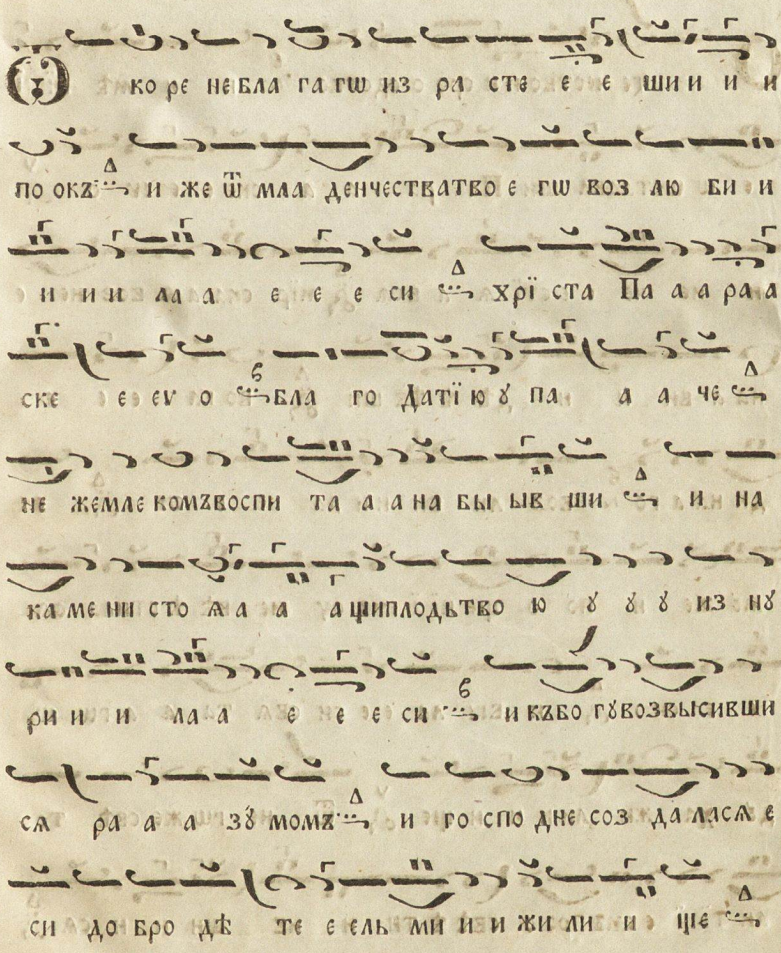 Ѿ ко ре не бла га гѡ из ра сте е е ши и и и
по окъ Δ и же ѿ мла денчестватво е гѡ воз лю би и
и и и ла а е е е си Δ хрї ста Па а а ра а
ске е еѵ о в бла го Датї ю ꙋ па а а че Δ
не жемле комъвоспи та а а на бы ыв ши Δ и на
ка ме ни сто ѧ а а ащиплодьтво ю ꙋ ꙋ ꙋ из нꙋ
ри и и ла а е е е си в и къбо гꙋвозвысивши
сѧ ра а а зꙋ момъ Δ и го спо дне соз да ласѧ е
си до бро дѣ те е ель ми и и жи ли и ще Δ